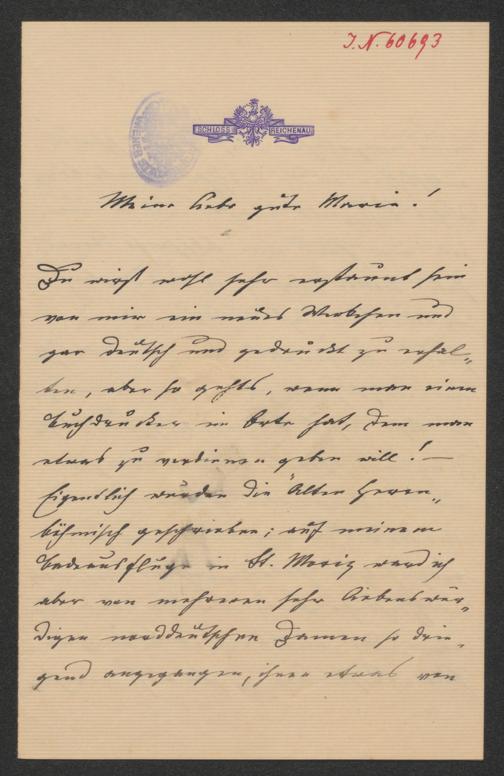 I.N. 60693
SCHLOSS REICHENAU
Meine liebe gute Marie!
Du wirst wohl sehr erstaunt sein
von mir ein neues Werkchen und
gar deutsch und gedruckt zu erhal-
ten, aber so gehts, wenn man einen
Buchdrucker im Orte hat, dem man
etwas zu verdienen geben will! —
Eigentlich wurden die "Alten Herren"
böhmisch geschrieben; auf meinem
Badeausfluge in St. Moriz ward ich
aber von mehreren sehr liebenswür-
digen norddeutschen Damen so drin-
gend angegangen, ihnen etwas von